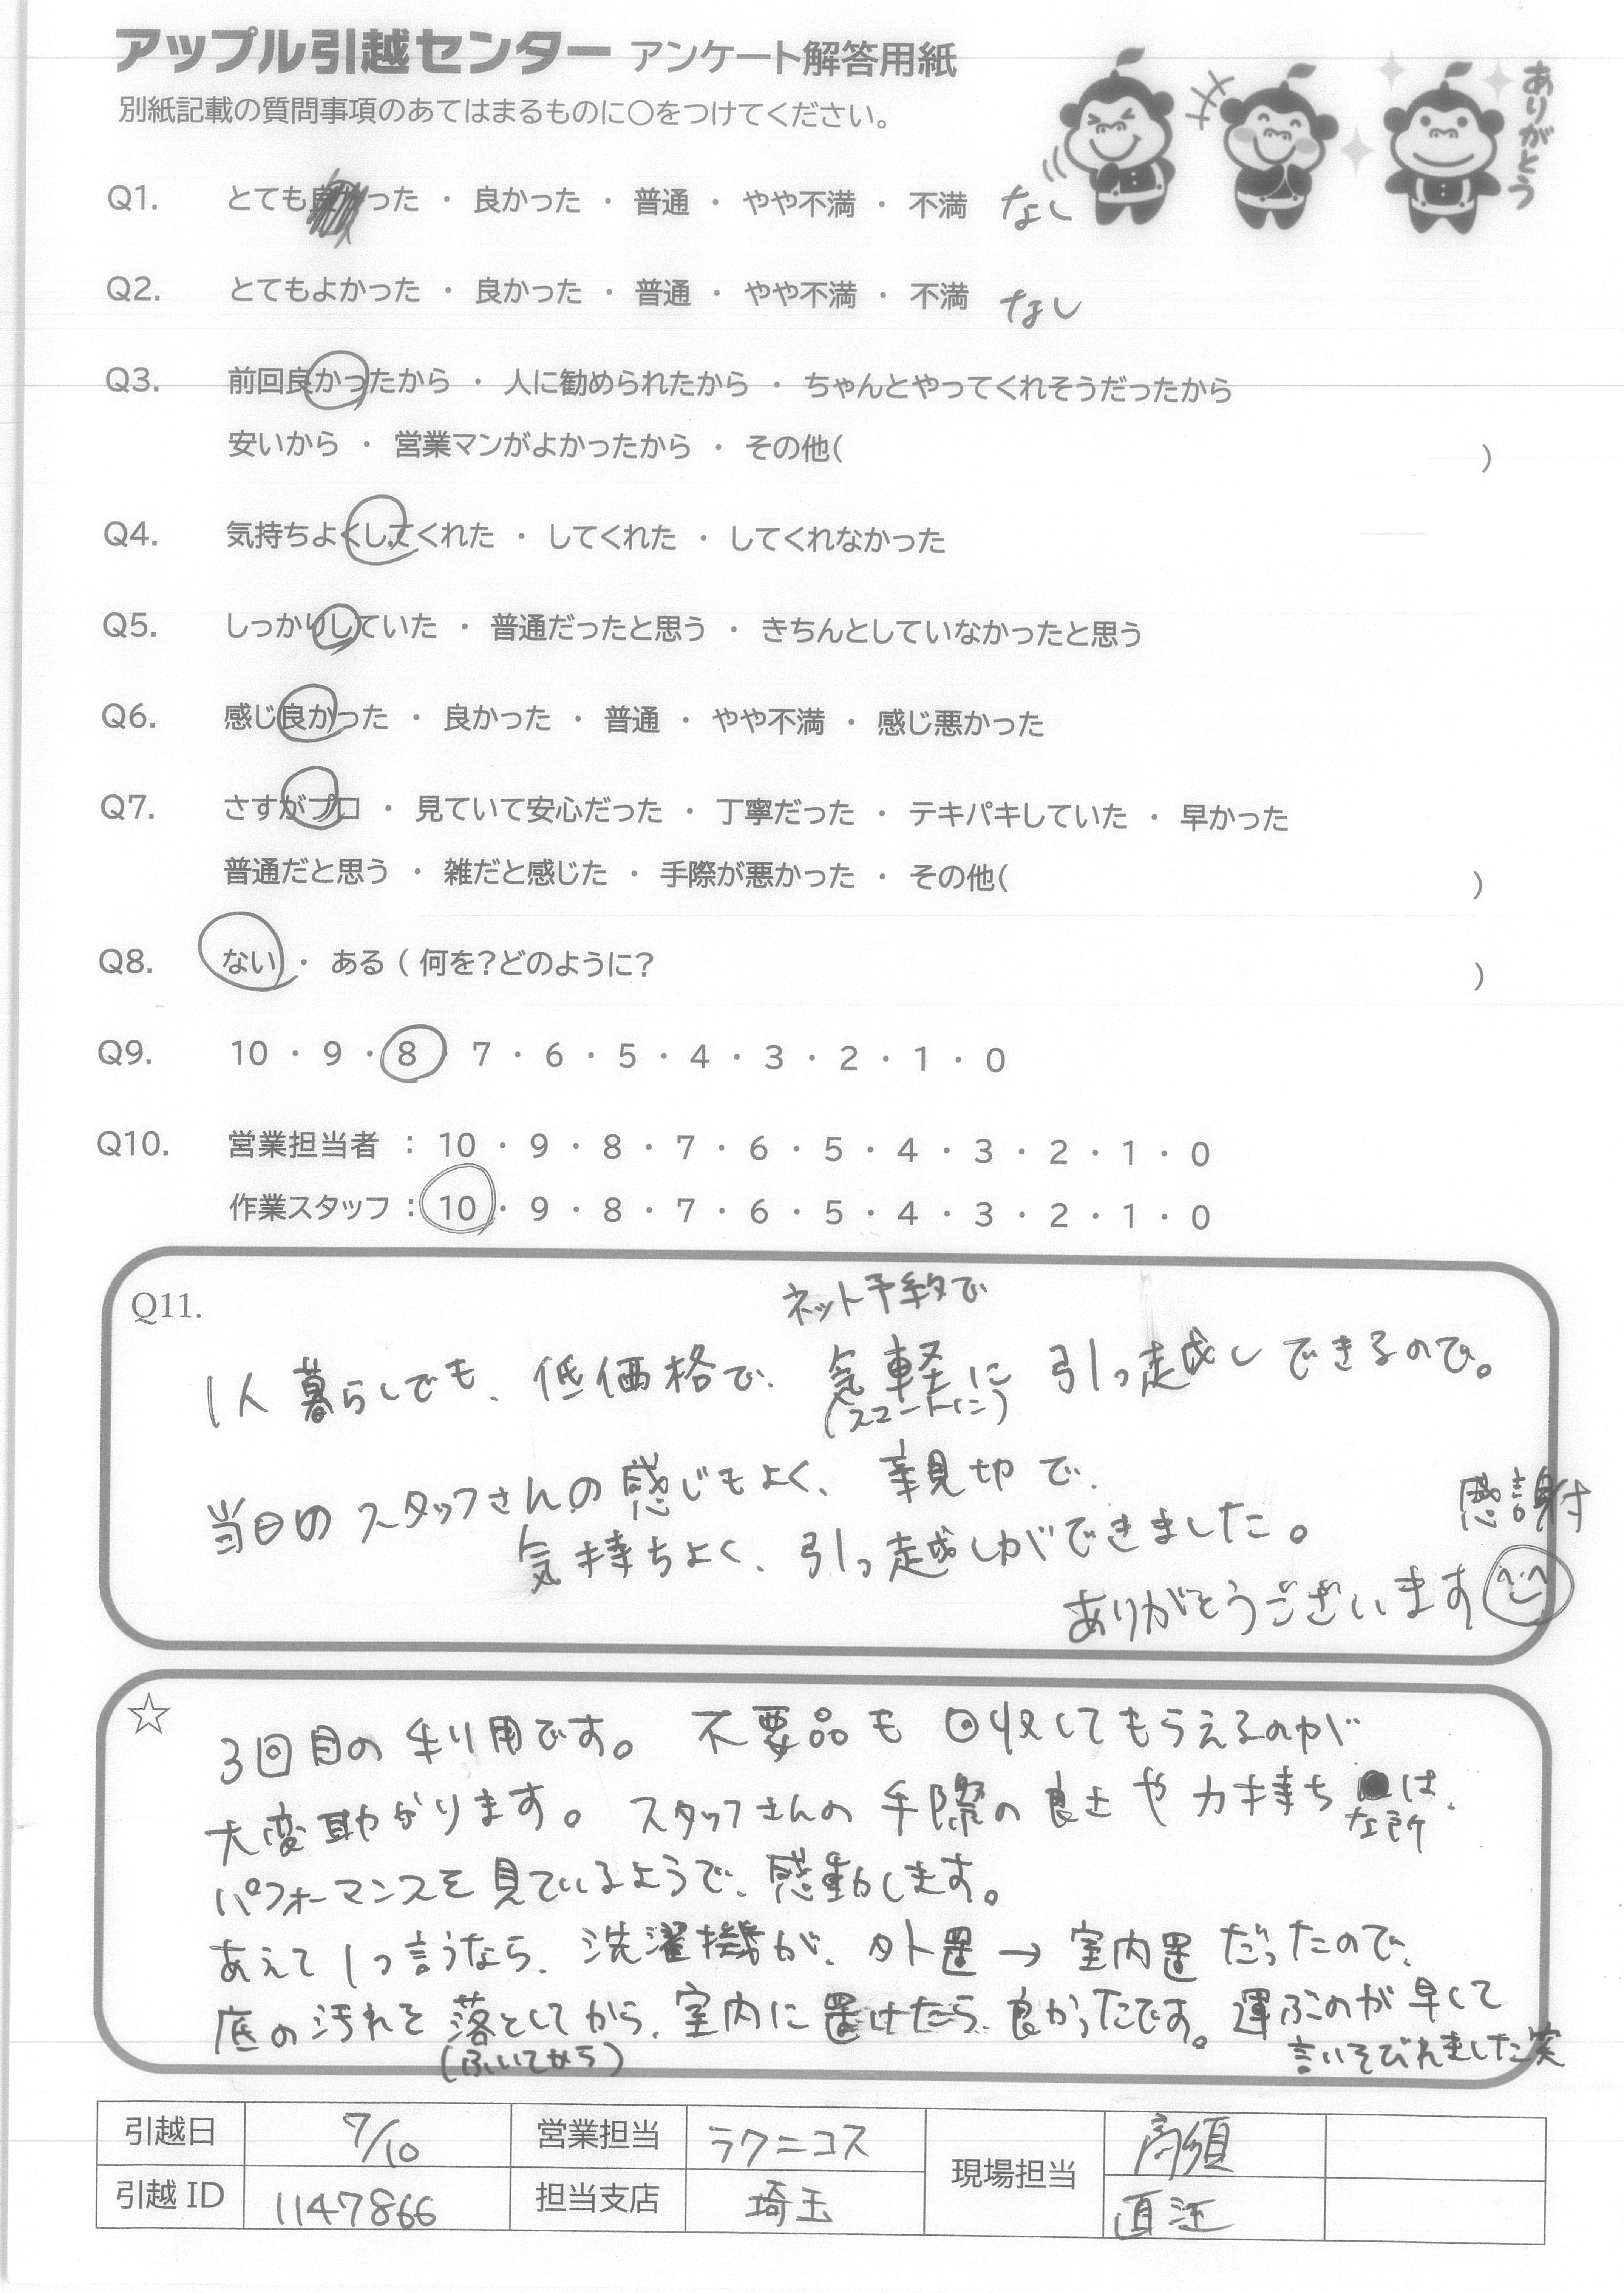 アップル引越センター アンケート解答用紙
別紙記載の質問事項のあてはまるものに○をつけてください。
ありがとう
Q1. とても良かった ・ 良かった ・ 普通 ・ やや不満 ・ 不満 なし
Q2. とてもよかった ・ 良かった ・ 普通 ・ やや不満 ・ 不満 なし
Q3. 前回良かったから ・ 人に勧められたから ・ ちゃんとやってくれそうだったから
安いから ・ 営業マンがよかったから ・ その他( )
Q4. 気持ちよくしてくれた ・ してくれた ・ してくれなかった
Q5. しっかりしていた ・ 普通だったと思う ・ きちんとしていなかったと思う
Q6. 感じ良かった ・ 良かった ・ 普通 ・ やや不満 ・ 感じ悪かった
Q7. さすがプロ ・ 見ていて安心だった ・ 丁寧だった ・ テキパキしていた ・ 早かった
普通だと思う ・ 雑だと感じた ・ 手際が悪かった ・ その他( )
Q8. ない ・ ある ( 何を?どのように? )
Q9. 10 ・ 9 ・ 8 ・ 7 ・ 6 ・ 5 ・ 4 ・ 3 ・ 2 ・ 1 ・ 0
Q10. 営業担当者 : 10 ・ 9 ・ 8 ・ 7 ・ 6 ・ 5 ・ 4 ・ 3 ・ 2 ・ 1 ・ 0
作業スタッフ : 10 ・ 9 ・ 8 ・ 7 ・ 6 ・ 5 ・ 4 ・ 3 ・ 2 ・ 1 ・ 0
Q11.
ネット予約で
1人暮らしでも、低価格で、気軽に引っ越しできるので。
(スマートに)
当日のスタッフさんの感じもよく、親切で、
気持ちよく、引っ越しができました。
感謝
ありがとうございます
☆
3回目の利用です。不要品も回収してもらえるのが
大変助かります。スタッフさんの手際の良さや力持ちは、
な所
パフォーマンスを見ているようで、感動します。
あえて1つ言うなら、洗濯機が、外置→室内置だったので、
底の汚れを落としてから、室内に置けたら良かったです。運ぶのが早くて
(ふいてから)
言いそびれました笑
引越日 7/10 営業担当 ラクニコス 現場担当 高須
引越 ID 1147866 担当支店 埼玉 直江